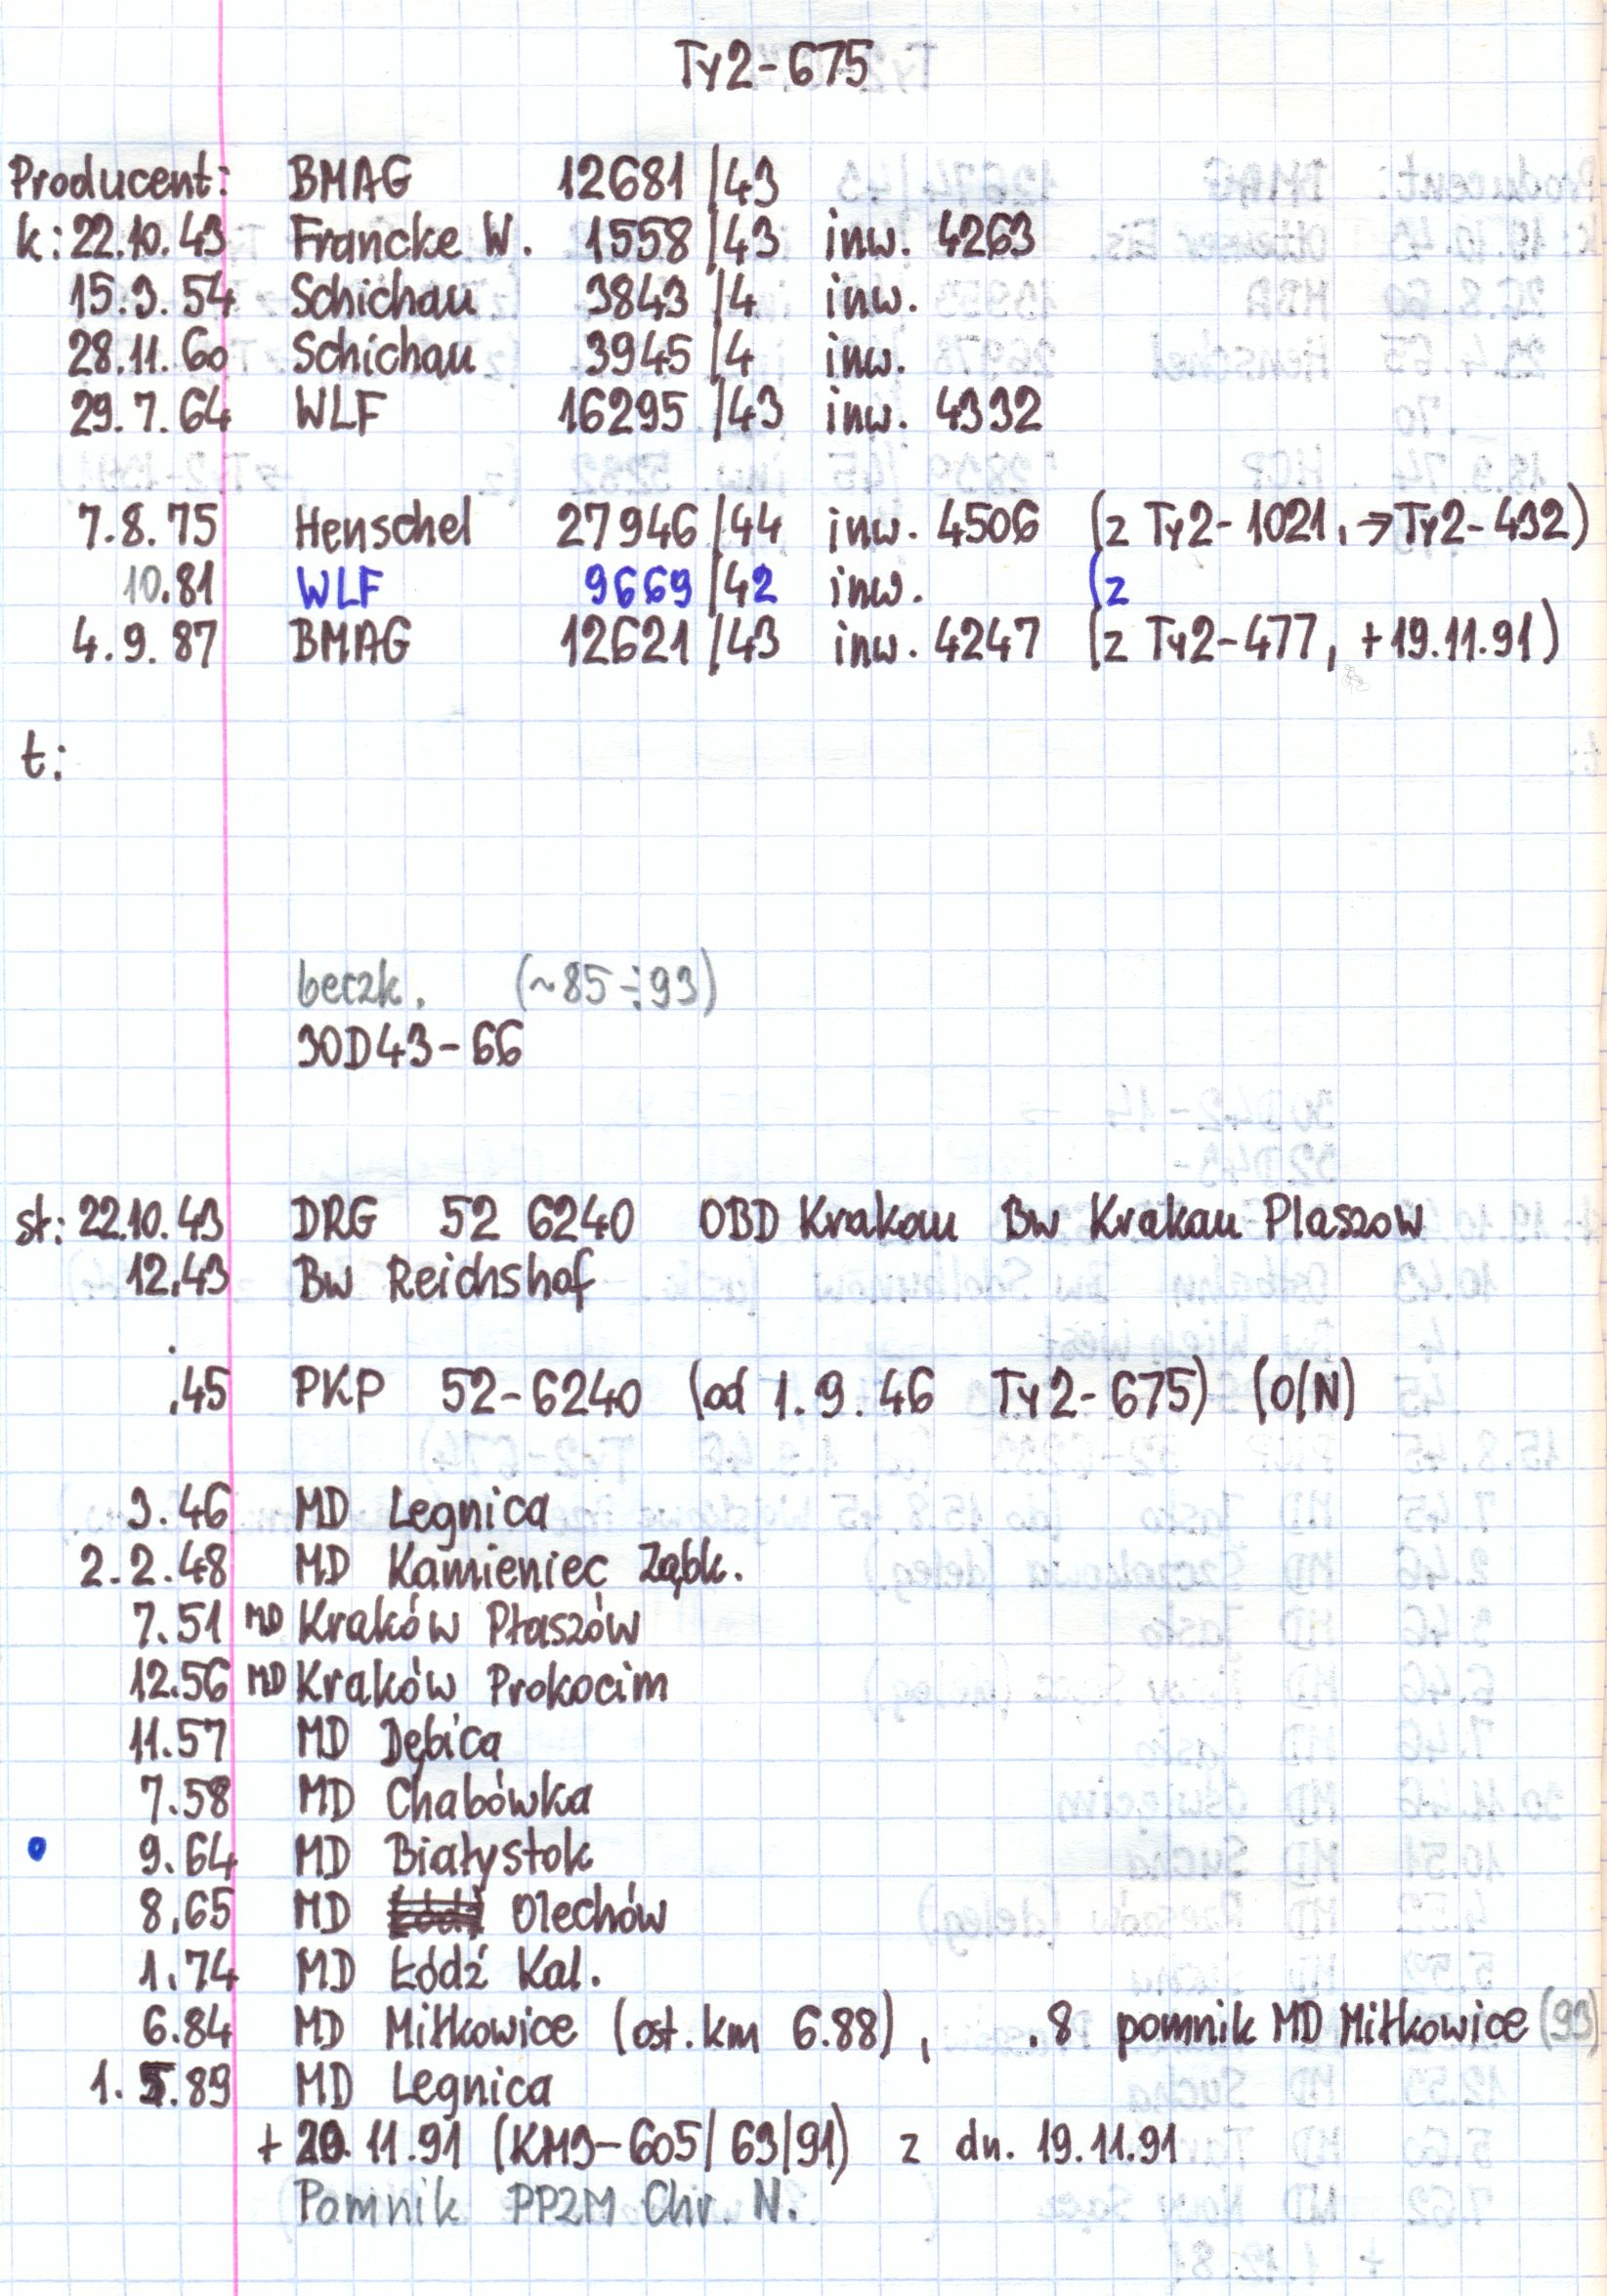 Ty2-675
Producent: BMAG 12681/43
k: 22.10.43 Francke W. 1558/43 inw. 4263
15.3.54 Schichau 3843/4 inw.
28.11.60 Schichau 3945/4 inw.
29.7.64 WLF 16295/43 inw. 4332
7.8.75 Henschel 27946/44 inw. 4506 (z Ty2-1021, →Ty2-432)
10.81 WLF 9669/42 inw. (z
4.9.87 BMAG 12621/43 inw. 4247 (z Ty2-477, +19.11.91)
t:
beczk. (~85÷93)
30D43-66
st: 22.10.43 DRG 52 6240 OBD Krakau Bw Krakau Plaszow
12.43 Bw Reichshof
.
.45 PKP 52-6240 (od 1.9.46 Ty2-675) (O/N)
3.46 MD Legnica
2.2.48 MD Kamieniec Ząbk.
7.51 MD Kraków Płaszów
12.56 MD Kraków Prokocim
11.57 MD Dębica
7.58 MD Chabówka
9.64 MD Białystok
8.65 MD Olechów
1.74 MD Łódź Kal.
6.84 MD Miłkowice (ost. km 6.88), .8 pomnik MD Miłkowice (93)
1.5.89 MD Legnica
+ 20.11.91 (KM9-605/63/91) z dn. 19.11.91
Pomnik PPZM Chr. N.